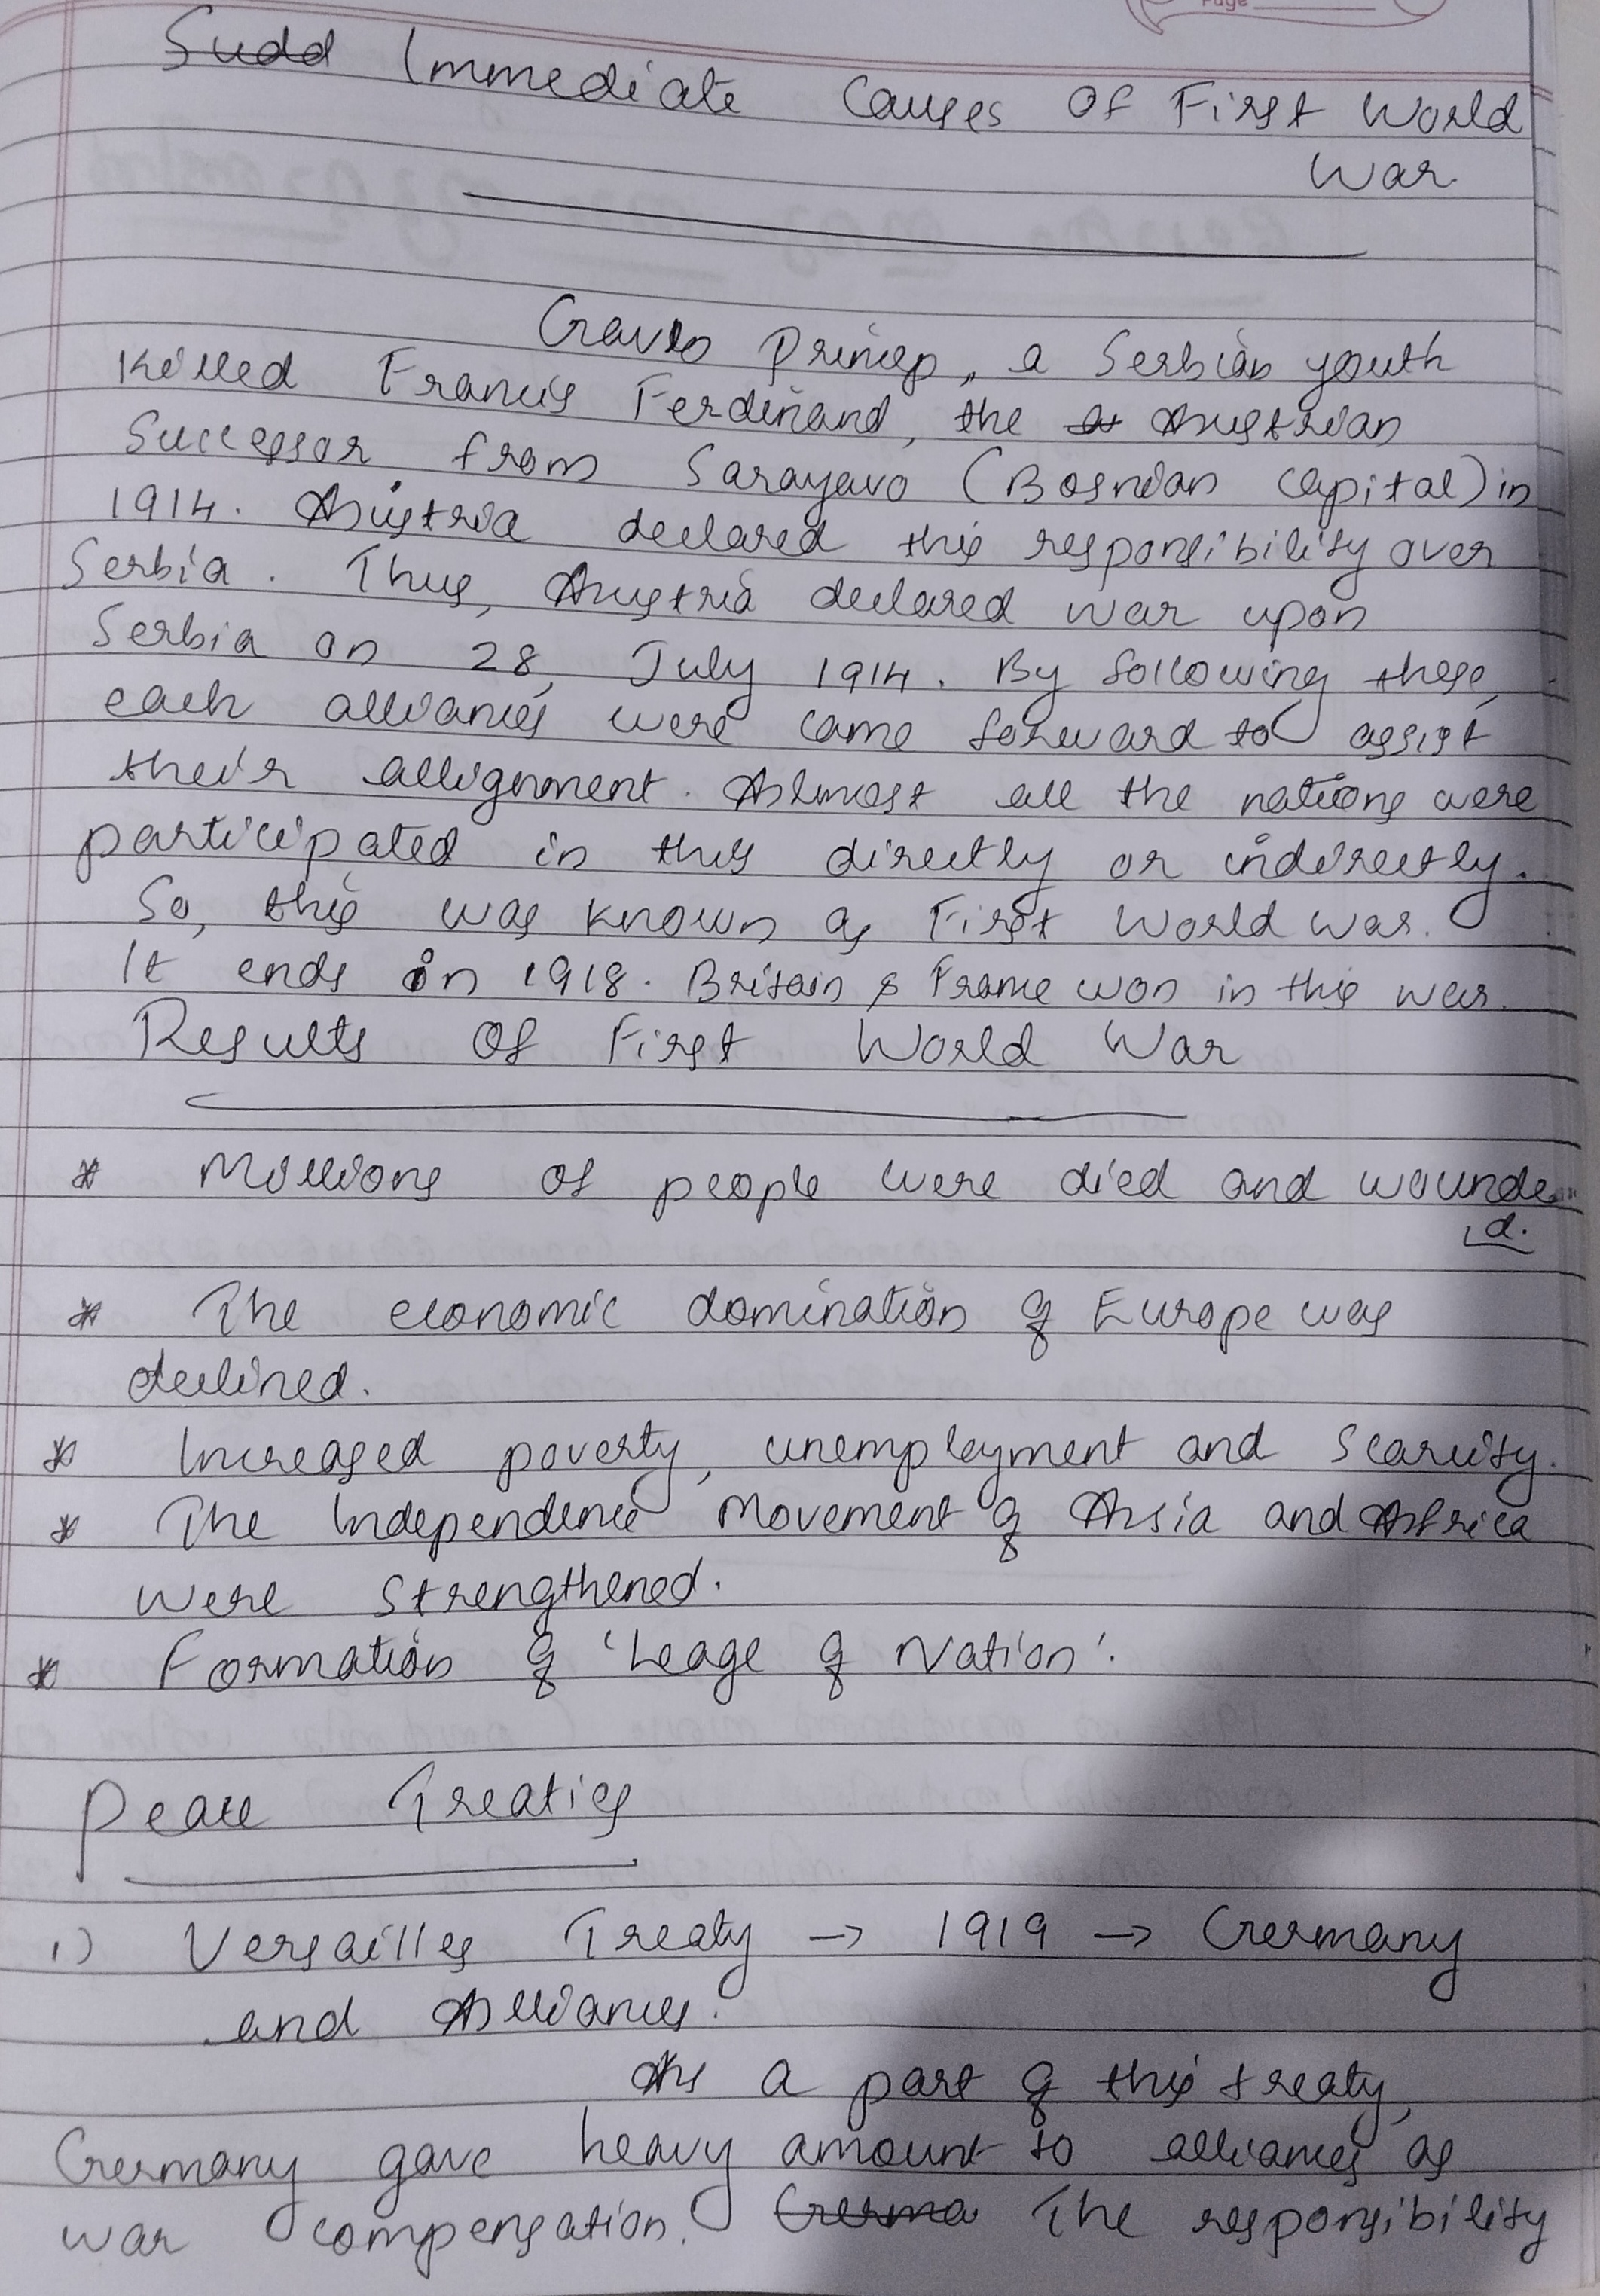 Page
Sudd Immediate Causes Of First World
War
Gavlo Princep, a Serbian youth
Killed Francis Ferdinand, the Austrian
Successor from Sarayavo (Bosnian Capital) in
1914. Austria declared this responsibility over
Serbia. Thus, Austria declared war upon
Serbia on 28, July 1914. By following these,
each alliances were came forward to assist
their allignment. Almost all the nations were
participated in this directly or indirectly.
So, this was known as First World War.
It ends in 1918. Britain & France won in this war.
Results Of First World War
* Millions of people were died and wounde
d.
* The economic domination of Europe was
declined.
* Increased poverty, unemployment and Scarcity.
* The Independence Movement of Asia and Africa
were strengthened.
* Formation of 'Leage of Nation'.
Peace Treaties
1) Versailles Treaty → 1919 → Germany
and Alliances.
As a part of this treaty,
Germany gave heavy amount to alliances as
war compensation. Germa The responsibility